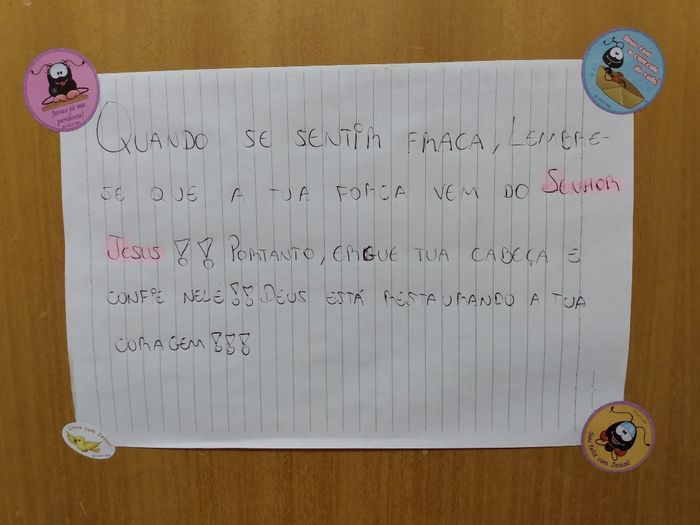 Jesus já me
perdoou!
Deus tem
o controle
de tudo!
QUANDO SE SENTIR FRACA, LEMBRE-
SE QUE A TUA FORÇA VEM DO SENHOR
JESUS!! PORTANTO, ERGUE TUA CABEÇA E
CONFIE NELE!! DEUS ESTÁ RESTAURANDO A TUA
CORAGEM!!!
Livre com Jesus!
Sou feliz com Jesus!